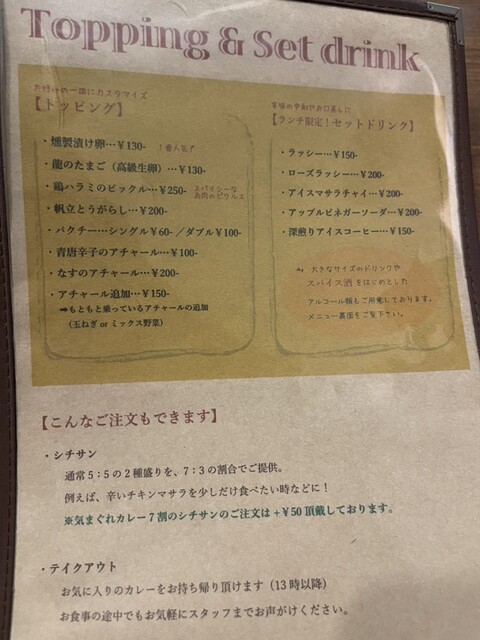 Topping & Set drink
お好みの一皿にカスタマイズ
【トッピング】
・燻製漬け卵…¥130- 1番人気!
・龍のたまご（高級生卵）…¥130-
・鶏ハラミのピックル…¥250- スパイシーな
お肉のピクルス
・帆立とうがらし…¥200-
・パクチー…シングル¥60-／ダブル¥100-
・青唐辛子のアチャール…¥100-
・なすのアチャール…¥200-
・アチャール追加…¥150-
➡もともと乗っているアチャールの追加
（玉ねぎ or ミックス野菜）
辛味の中和やお口直しに
【ランチ限定！セットドリンク】
・ラッシー…¥150-
・ローズラッシー…¥200-
・アイスマサラチャイ…¥200-
・アップルビネガーソーダ…¥200-
・深煎りアイスコーヒー…¥150-
大きなサイズのドリンクや
スパイス酒をはじめとした
アルコール類もご用意しております。
メニュー裏面をご覧下さい。
【こんなご注文もできます】
・シチサン
通常5：5の2種盛りを、7：3の割合でご提供。
例えば、辛いチキンマサラを少しだけ食べたい時などに！
※気まぐれカレー7割のシチサンのご注文は+¥50頂戴しております。
・テイクアウト
お気に入りのカレーをお持ち帰り頂けます（13時以降）
お食事の途中でもお気軽にスタッフまでお声がけください。